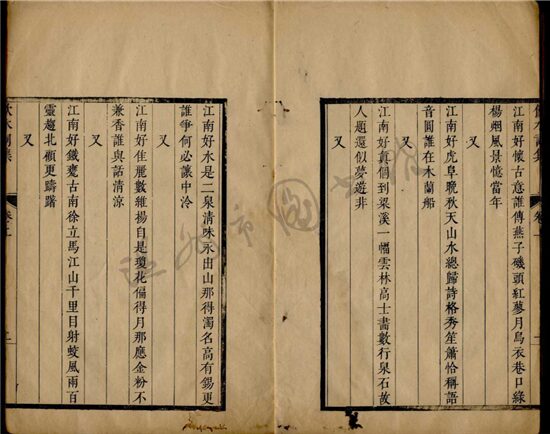 江南好懷古意誰傳燕子磯頭紅蓼月烏衣巷口綠
楊烟風景憶當年
又
江南好虎阜晚秋天山水總歸詩格秀笙簫恰稱語
音圓誰在木蘭船
又
江南好真個到梁溪一幅雲林高士畫數行泉石故
人題還似夢遊非
又
江南好水是二泉清味永出山那得濁名高有錫更
誰爭何必讓中泠
又
江南好佳麗數維揚自是瓊花偏得月那應金粉不
兼香誰與話清涼
又
江南好鐵甕古南徐立馬江山千里目射蛟風雨百
靈趨北顧更躊躇
又